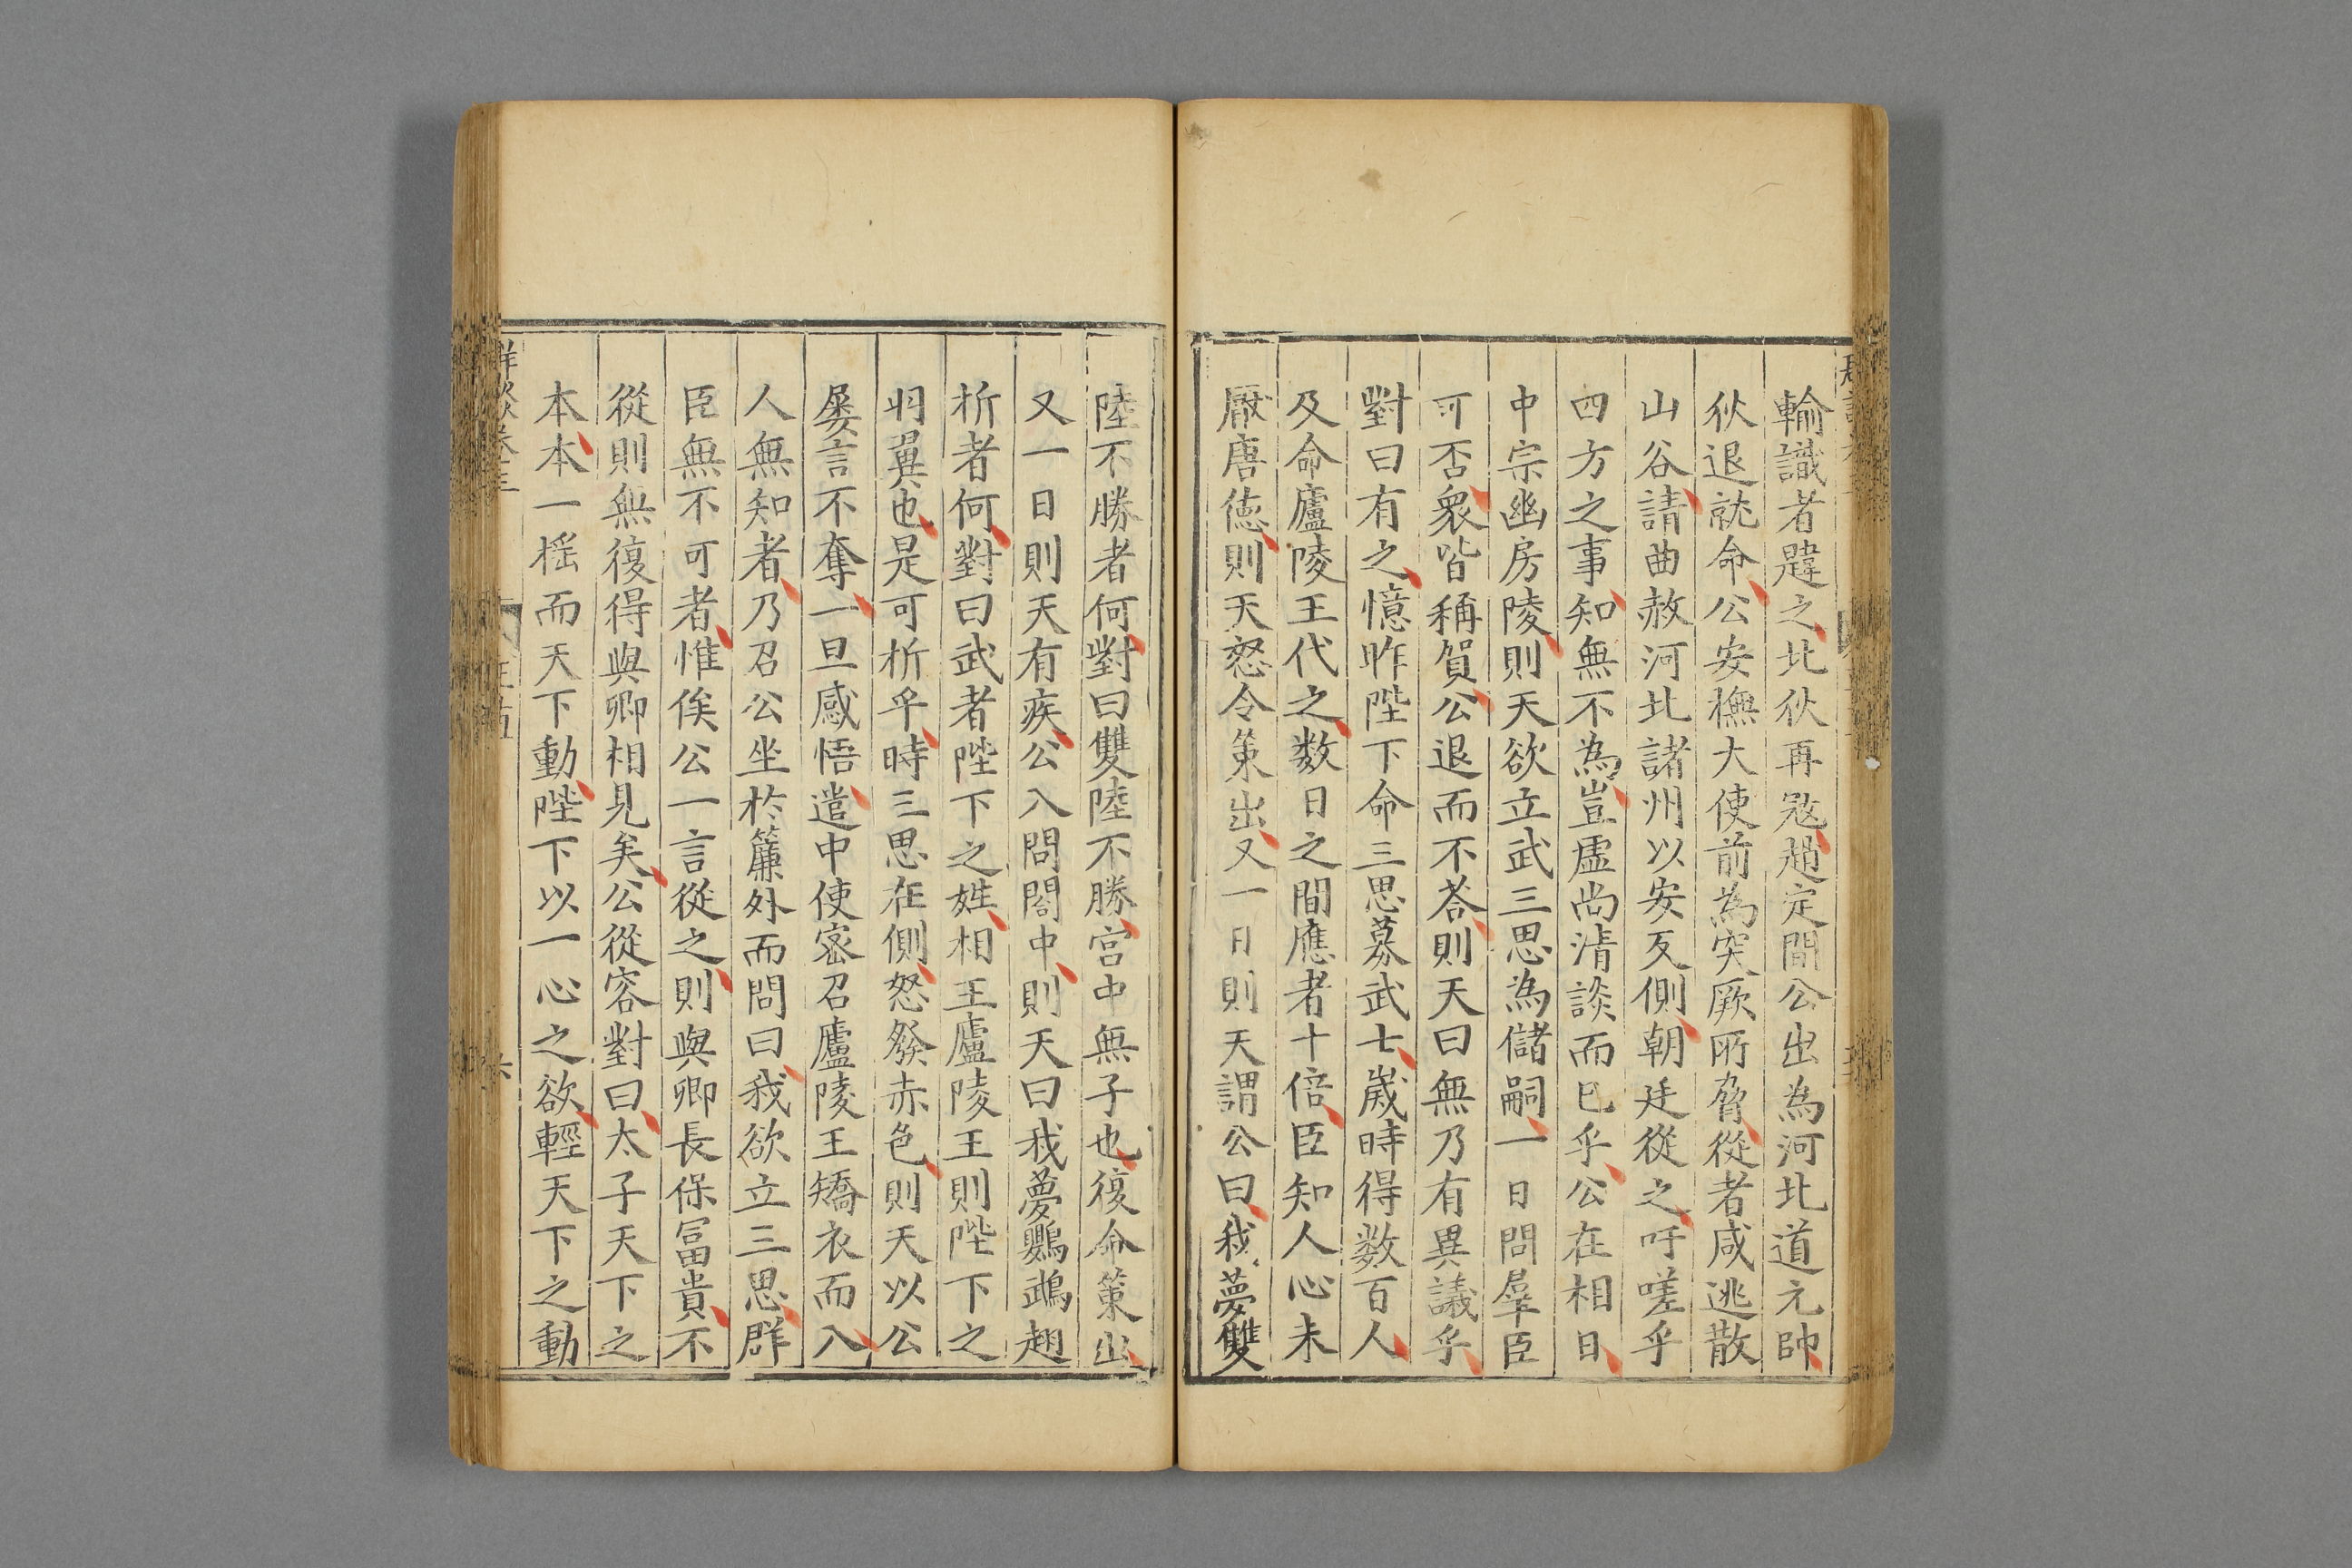 輪識者韙之北狄再冦趙定間公出為河北道元帥
狄退就命公安撫大使前為突厥所脅從者咸逃散
山谷請曲赦河北諸州以安反側朝廷從之吁嗟乎
四方之事知無不為豈虛尚清談而已乎公在相日
中宗幽房陵則天欲立武三思為儲嗣一日問羣臣
可否衆皆稱賀公退而不荅則天曰無乃有異議乎
對曰有之憶昨陛下命三思募武士歲時得數百人
及命廬陵王代之数日之間應者十倍臣知人心未
厭唐徳則天怒令策出又一日則天謂公曰我夢雙
陸不勝者何對曰雙陸不勝宮中無子也復命策出
又一日則天有疾公入問閤中則天曰我夢鸚鵡翅
折者何對曰武者陛下之姓相王廬陵王則陛下之
羽翼也是可折乎時三思在側怒發赤色則天以公
屡言不奪一旦感悟遣中使宻召廬陵王矯衣而入
人無知者乃召公坐於簾外而問曰我欲立三思群
臣無不可者惟俟公一言從之則與卿長保冨貴不
從則無復得與卿相見矣公從容對曰太子天下之
本本一揺而天下動陛下以一心之欲輕天下之動